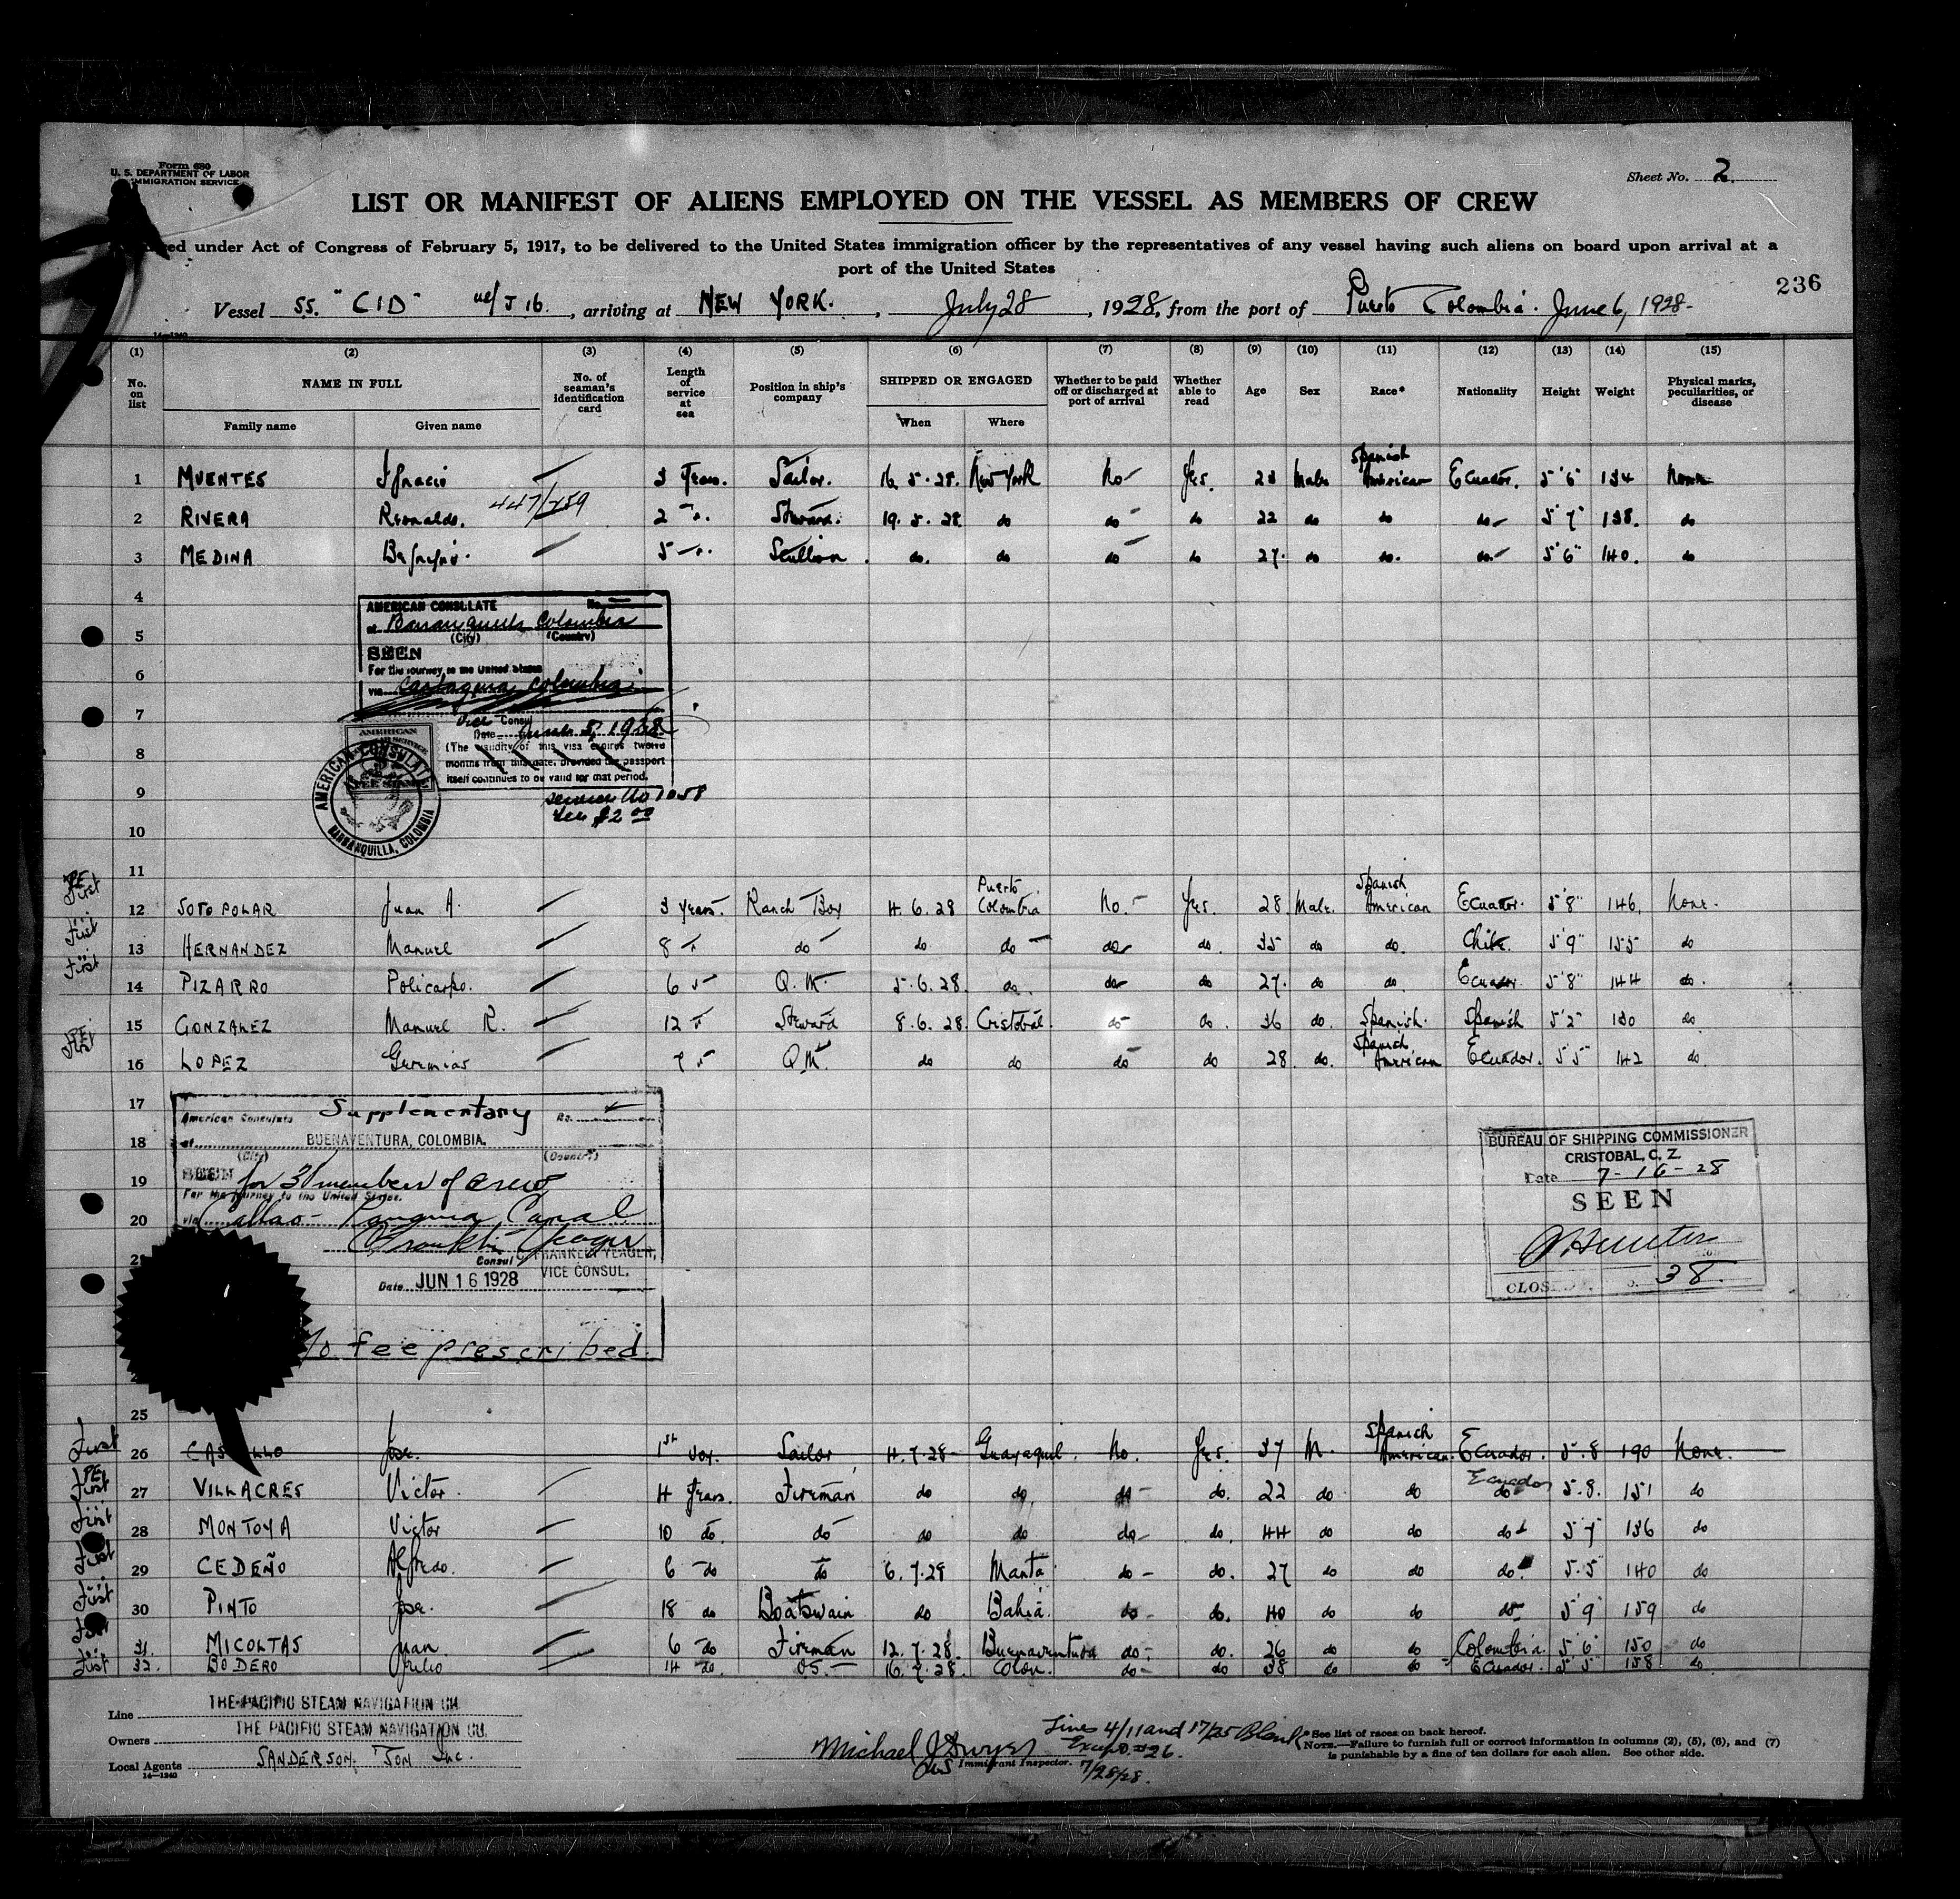 Form 680
U. S. DEPARTMENT OF LABOR
IMMIGRATION SERVICE
Sheet No. 2.
LIST OR MANIFEST OF ALIENS EMPLOYED ON THE VESSEL AS MEMBERS OF CREW
under Act of Congress of February 5, 1917, to be delivered to the United States immigration officer by the representatives of any vessel having such aliens on board upon arrival at a
port of the United States
236
Vessel SS. "CID" , arriving at NEW YORK. , July 28 , 1928, from the port of Puerto Colombia. June 6, 1928
14-1240
(1) (2) (3) (4) (5) (6) (7) (8) (9) (10) (11) (12) (13) (14) (15)
No. on list NAME IN FULL No. of seaman's identification card Length of service at sea Position in ship's company SHIPPED OR ENGAGED Whether to be paid off or discharged at port of arrival Whether able to read Age Sex Race* Nationality Height Weight Physical marks, peculiarities, or disease
Family name Given name When Where
1 MUENTES Ignacio 3 Years. Sailor. 16. 5. 28. New York No Yes. 23 Male Spanish American Ecuador. 5'6" 134 None
447/759
2 RIVERA Reonaldo. 2 " Steward. 19. 5. 28 do do do 22 do do do 5'7" 138. do
3 MEDINA 5 " Scullion. do. do do do 27. do do. do 5'6" 140. do
4
5
6
7
8
9
10
11
AMERICAN CONSULATE No.
at Barranquilla Colombia
(City) (Country)
SEEN
For the journey to the United States
via Cartagena, Colombia
Vice Consul
Date 1928
(The validity of this visa expires twelve
months from this date, provided the passport
itself continues to be valid for that period.
Service No 1058
Fee $2 00
AMERICAN CONSULATE
BARRANQUILLA, COLOMBIA
First 12 SOTOPOLAR Juan A. 3 years. Ranch Boy 4. 6. 28 Puerto Colombia No. Yes. 28 Male. Spanish American Ecuador. 5'8" 146. None.
First 13 HERNANDEZ Manuel 8 " do do do do do. 35 do do. Chile. 5'9" 155 do
First 14 PIZARRO Policarpo. 6 " Q. M. 5. 6. 28. do. do do 27. do do Ecuador. 5'8" 144 do.
15 GONZALEZ Manuel R. 12 " Steward 8. 6. 28 Cristobal. do do. 36 do. Spanish. Spanish 5'2" 130 do
First 16 LOPEZ Geremias 7 " Q.M. do do do do 28. do. Spanish American Ecuador. 5'5" 142 do.
17
18
19
20
American Consulate Supplementary No.
at BUENAVENTURA, COLOMBIA.
(City) (Country)
SEEN for 31 members of crew
For the journey to the United States.
via Callao - Panama Canal
Franklin Yeager
Consul FRANKLIN YEAGER,
VICE CONSUL.
Date JUN 16 1928
No fee prescribed.
BUREAU OF SHIPPING COMMISSIONER
CRISTOBAL, C. Z.
Date 7-16-28
SEEN
Hunter
38.
25
First 26 CASTILLO Jose. 1st voy. Sailor 4. 7. 28 Guayaquil. No. Yes. 37 M. Spanish American. Ecuador. 5.8 190 None.
First 27 VILLACRES Victor. 4 Years. Fireman do do do do. 22 do do Ecuador do 5.8. 151 do
First 28 MONTOYA Victor 10 do. do do do do do. 44 do do do 5'7" 136 do
First 29 CEDEÑO Alfredo. 6 do do 6. 7. 28 Manta do do. 27 do do do. 5.5" 140 do
First 30 PINTO Jose. 18 do Boatswain do Bahia. do do. 40 do do do 5'9" 159 do
31. MICOLTAS Juan 6 do Fireman 12. 7. 28. Buenaventura do do. 26 do do Colombia. 5'6" 150 do
First 32. BODERO Julio 14 do. OS. 16. 7. 28. Colon. do do 38 do do Ecuador. 5'5" 158 do.
Line THE PACIFIC STEAM NAVIGATION CO.
Owners THE PACIFIC STEAM NAVIGATION CO.
Local Agents SANDERSON & SON Inc.
14-1240
Michael J Dwyer
Immigrant Inspector.
Lines 4/11 and 17/25 Blank
Except #26.
7/28/28.
* See list of races on back hereof.
NOTE.—Failure to furnish full or correct information in columns (2), (5), (6), and (7)
is punishable by a fine of ten dollars for each alien. See other side.